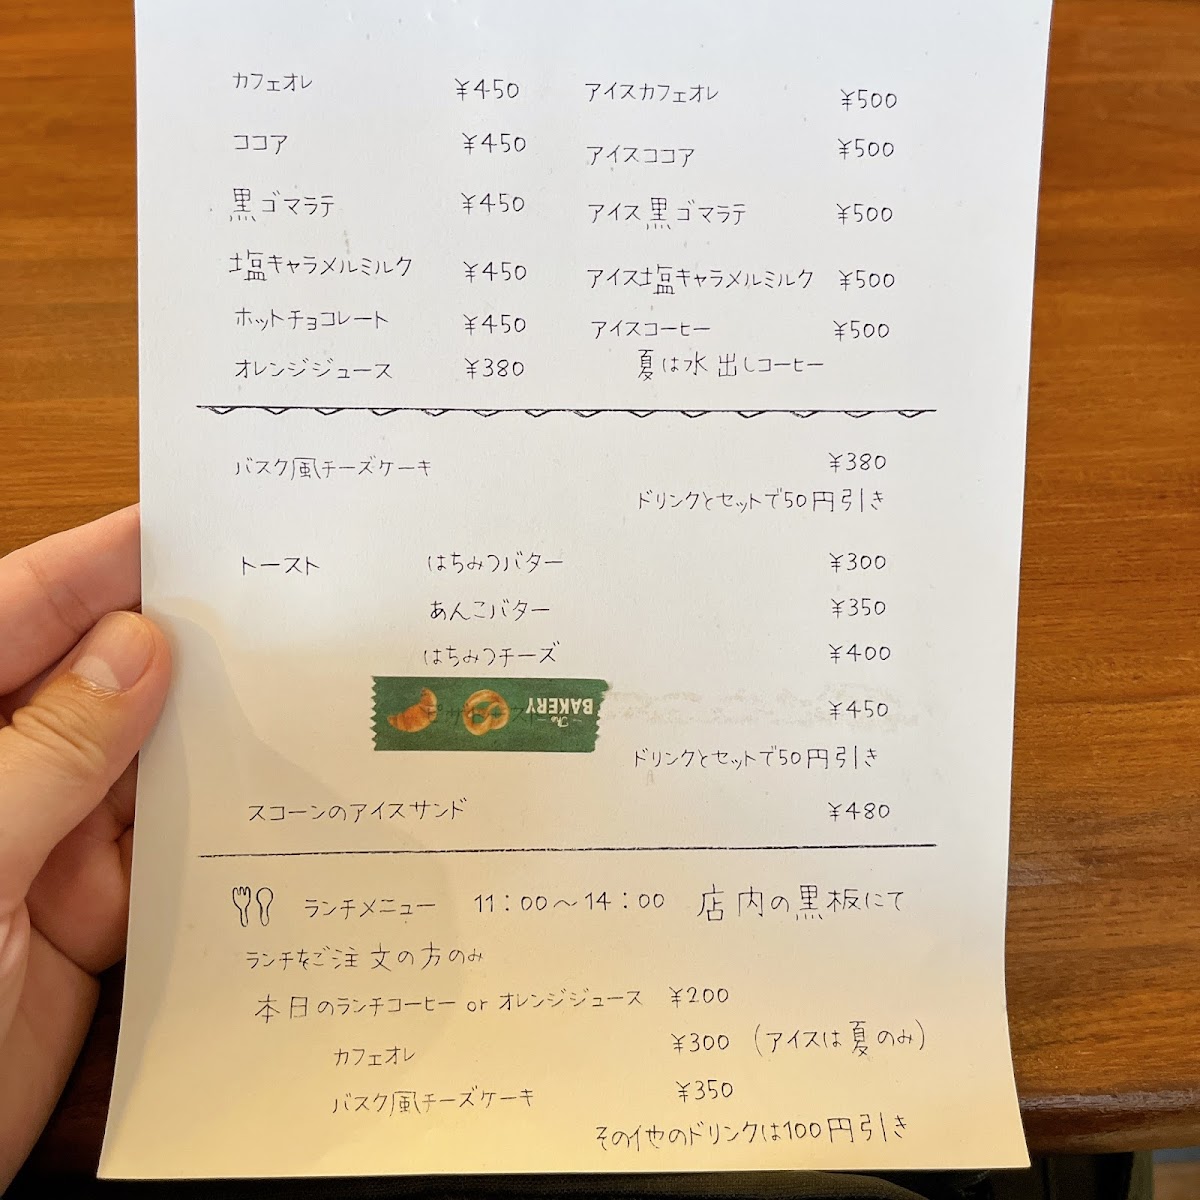 カフェオレ ¥450 アイスカフェオレ ¥500
ココア ¥450 アイスココア ¥500
黒ゴマラテ ¥450 アイス黒ゴマラテ ¥500
塩キャラメルミルク ¥450 アイス塩キャラメルミルク ¥500
ホットチョコレート ¥450 アイスコーヒー ¥500
オレンジジュース ¥380 夏は水出しコーヒー
バスク風チーズケーキ ¥380
ドリンクとセットで50円引き
トースト はちみつバター ¥300
あんこバター ¥350
はちみつチーズ ¥400
The BAKERY ¥450
ドリンクとセットで50円引き
スコーンのアイスサンド ¥480
ランチメニュー 11:00～14:00 店内の黒板にて
ランチをご注文の方のみ
本日のランチコーヒー or オレンジジュース ¥200
カフェオレ ¥300 (アイスは夏のみ)
バスク風チーズケーキ ¥350
その他のドリンクは100円引き